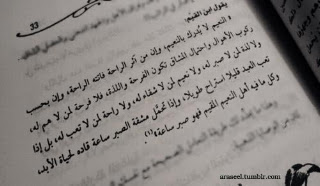 33
يقول ابن القيم:
« النعيم لا يدرك بالنعيم، وإن من آثر الراحة فاتته الراحة، وإن بحسب
ركوب الأهوال واحتمال المشاق تكون الفرحة واللذة، فلا فرحة لمن لا هم له،
ولا لذة لمن لا صبر له، ولا نعيم لمن لا شقاء له، ولا راحة لمن لا تعب له، بل إذا
تعب العبد قليلا استراح طويلا، وإذا تحمل مشقة الصبر ساعة قاده لحياة الأبد،
وكل ما فيه أهل النعيم المقيم فهو صبر ساعة»(١).
araseel.tumblr.com